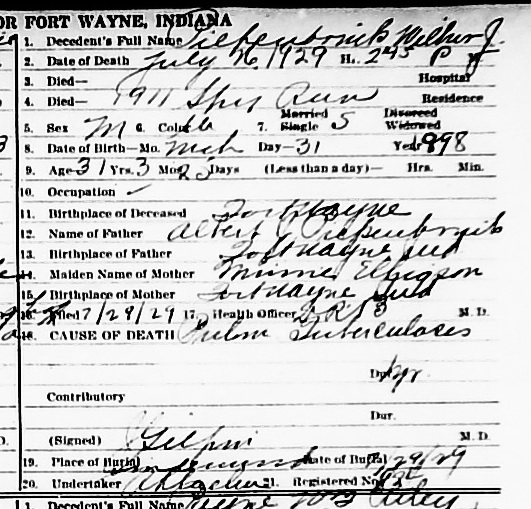 OR FORT WAYNE, INDIANA
1. Decedent's Full Name Wilbur J.
2. Date of Death July 26 1929 H. 2 45 P M
3. Died— Hospital
4. Died— 1911 Spy Run Residence
Married Divorced
5. Sex M 6. Color W 7. Single S Widowed
8. Date of Birth—Mo. Mch Day—31 Year 1898
9. Age 31 Yrs. 3 Mos. 25 Days (Less than a day)— Hrs. Min.
10. Occupation
11. Birthplace of Deceased Fort Wayne
12. Name of Father Albert C
13. Birthplace of Father Fort Wayne Ind
14. Maiden Name of Mother Minnie
15. Birthplace of Mother Fort Wayne Ind
16. Filed 7/29/29 17. Health Officer M. D.
18. CAUSE OF DEATH Pulm Tuberculoses
Dur. 1 yr
Contributory
Dur.
D. (Signed) Gilpin M. D.
19. Place of Burial Lindenwood Date of Burial 7/29/29
20. Undertaker 21. Registered No.
1. Decedent's Full Name